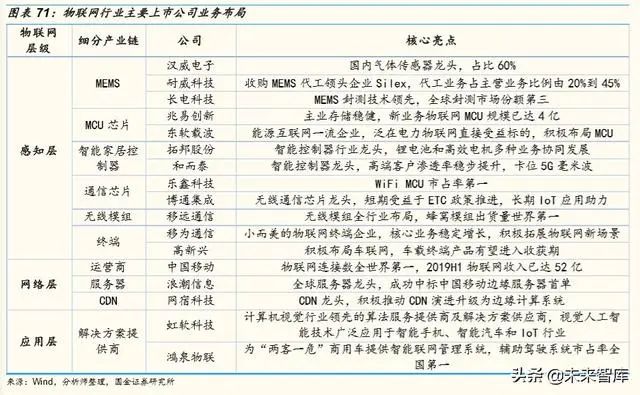 图表 71：物联网行业主要上市公司业务布局
物联网层级 细分产业链 公司 核心亮点
感知层 MEMS 汉威电子 国内气体传感器龙头，占比 60%
耐威科技 收购 MEMS 代工领头企业 Silex，代工业务占主营业务比例由 20%到 45%
长电科技 MEMS 封测技术领先，全球封测市场份额第三
MCU 芯片 兆易创新 主业存储稳健，新业务物联网 MCU 规模已达 4 亿
东软载波 能源互联网一流企业，泛在电力物联网直接受益标的，积极布局 MCU
智能家居控制器 拓邦股份 智能控制器行业龙头，锂电池和高效电机多种业务协同发展
和而泰 智能控制器龙头，高端客户渗透率稳步提升，卡位 5G 毫米波
通信芯片 乐鑫科技 WiFi MCU 市占率第一
博通集成 无线通信芯片龙头，短期受益于 ETC 政策推进，长期 IoT 应用助力
无线模组 移远通信 无线模组全行业布局，蜂窝模组出货量世界第一
终端 移为通信 小而美的物联网终端企业，核心业务稳定增长，积极拓展物联网新场景
高新兴 积极布局车联网，车载终端产品有望进入收获期
网络层 运营商 中国移动 物联网连接数全世界第一，2019H1 物联网收入已达 52 亿
服务器 浪潮信息 全球服务器龙头，成功中标中国移动边缘服务器首单
CDN 网宿科技 CDN 龙头，积极推动 CDN 演进升级为边缘计算系统
应用层 解决方案提供商 虹软科技 计算机视觉行业领先的算法服务提供商及解决方案供应商，视觉人工智
能技术广泛应用于智能手机、智能汽车和 IoT 行业
鸿泉物联 为“两客一危”商用车提供智能联网管理系统，辅助驾驶系统市占率全
国第一
来源：Wind，分析师整理，国金证券研究所
头条@未来智库